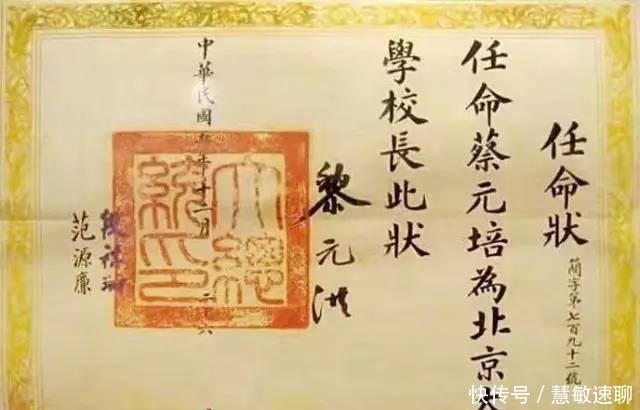 任命狀
簡字第七百九十二號
任命蔡元培為北京
學校長此狀
黎元洪
大總統印
中華民國五年十二月二十六
段祺瑞
范源廉
快传号／慧敏速聊